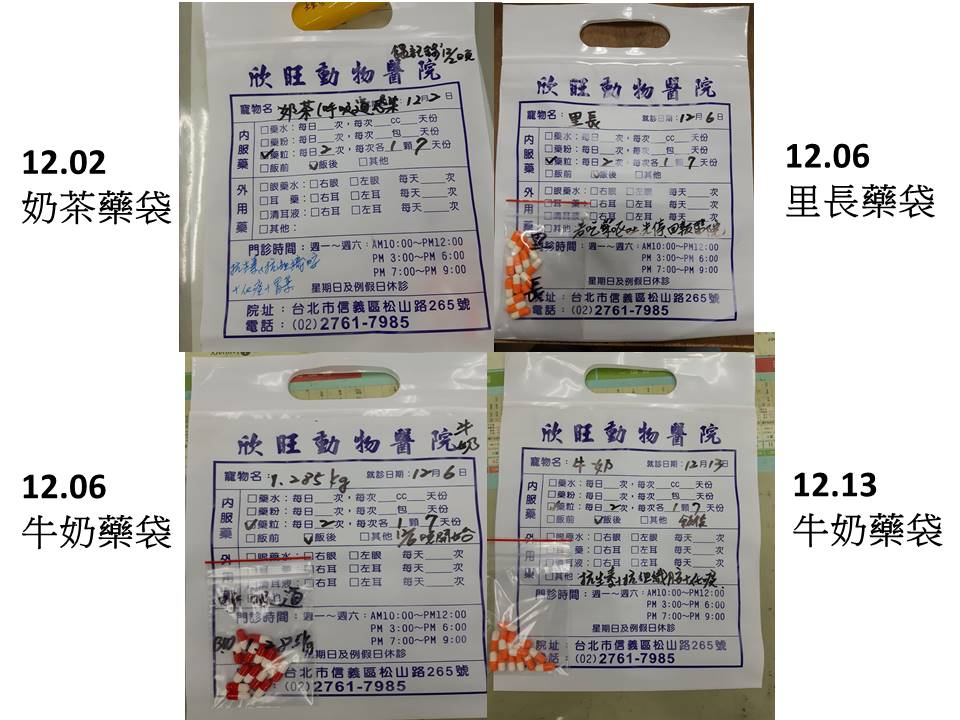 12.02
奶茶藥袋
12/2晚
欣旺動物醫院
寵物名：奶茶(呼吸道感染 12月2日
內服藥
□藥水：每日__次，每次__cc__天份
□藥粉：每日__次，每次__包__天份
☑藥粒：每日2次，每次各1顆7天份
□飯前 ☑飯後 □其他
外用藥
□眼藥水：□右眼 □左眼 每天__次
□耳 藥：□右耳 □左耳 每天__次
□清耳液：□右耳 □左耳 每天__次
□其他：
門診時間：週一～週六：AM10:00～PM12:00
PM 3:00～PM 6:00
PM 7:00～PM 9:00
星期日及例假日休診
抗生素+抗組織胺
+化痰+胃藥
院址：台北市信義區松山路265號
電話：(02)2761-7985
12.06
里長藥袋
欣旺動物醫院
寵物名：里長 就診日期：12月6日
內服藥
□藥水：每日__次，每次__cc__天份
□藥粉：每日__次，每次__包__天份
☑藥粒：每日2次，每次各1顆7天份
□飯前 ☑飯後 □其他
外用藥
□眼藥水：□右眼 □左眼 每天__次
□耳 藥：□右耳 □左耳 每天__次
□清耳液：□右耳 □左耳 每天__次
□其他
里長
門診時間：週一～週六：AM10:00～PM12:00
PM 3:00～PM 6:00
PM 7:00～PM 9:00
星期日及例假日休診
院址：台北市信義區松山路265號
電話：(02)2761-7985
12.06
牛奶藥袋
牛奶
欣旺動物醫院
寵物名：1.285kg 就診日期：12月6日
內服藥
□藥水：每日__次，每次__cc__天份
□藥粉：每日__次，每次__包__天份
☑藥粒：每日2次，每次各1顆7天份
□飯前 ☑飯後 □其他 12/6晚開始
外用藥
□眼藥水：□右眼 □左眼 每天__次
□右耳 □左耳 每天__次
清耳液：□右耳 □左耳 每天__次
呼吸道
門診時間：週一～週六：AM10:00～PM12:00
PM 3:00～PM 6:00
PM 7:00～PM 9:00
期日及例假日休診
台北市信義區松山路265號
(02)2761-7985
12.13
牛奶藥袋
欣旺動物醫院
寵物名：牛奶 就診日期：12月13日
內服藥
□藥水：每日__次，每次__cc__天份
□藥粉：每日__次，每次__包__天份
☑藥粒：每日2次，每次各1顆7天份
□飯前 ☑飯後 □其他
外用藥
□眼藥水：□右眼 □左眼 每天__次
□耳 藥：□右耳 □左耳 每天__次
□清耳液：□右耳 □左耳 每天__次
□其他 抗生素+抗組織胺+化痰
門診時間：週一～週六：AM10:00～PM12:00
PM 3:00～PM 6:00
PM 7:00～PM 9:00
星期日及例假日休診
院址：台北市信義區松山路265號
電話：(02)2761-7985